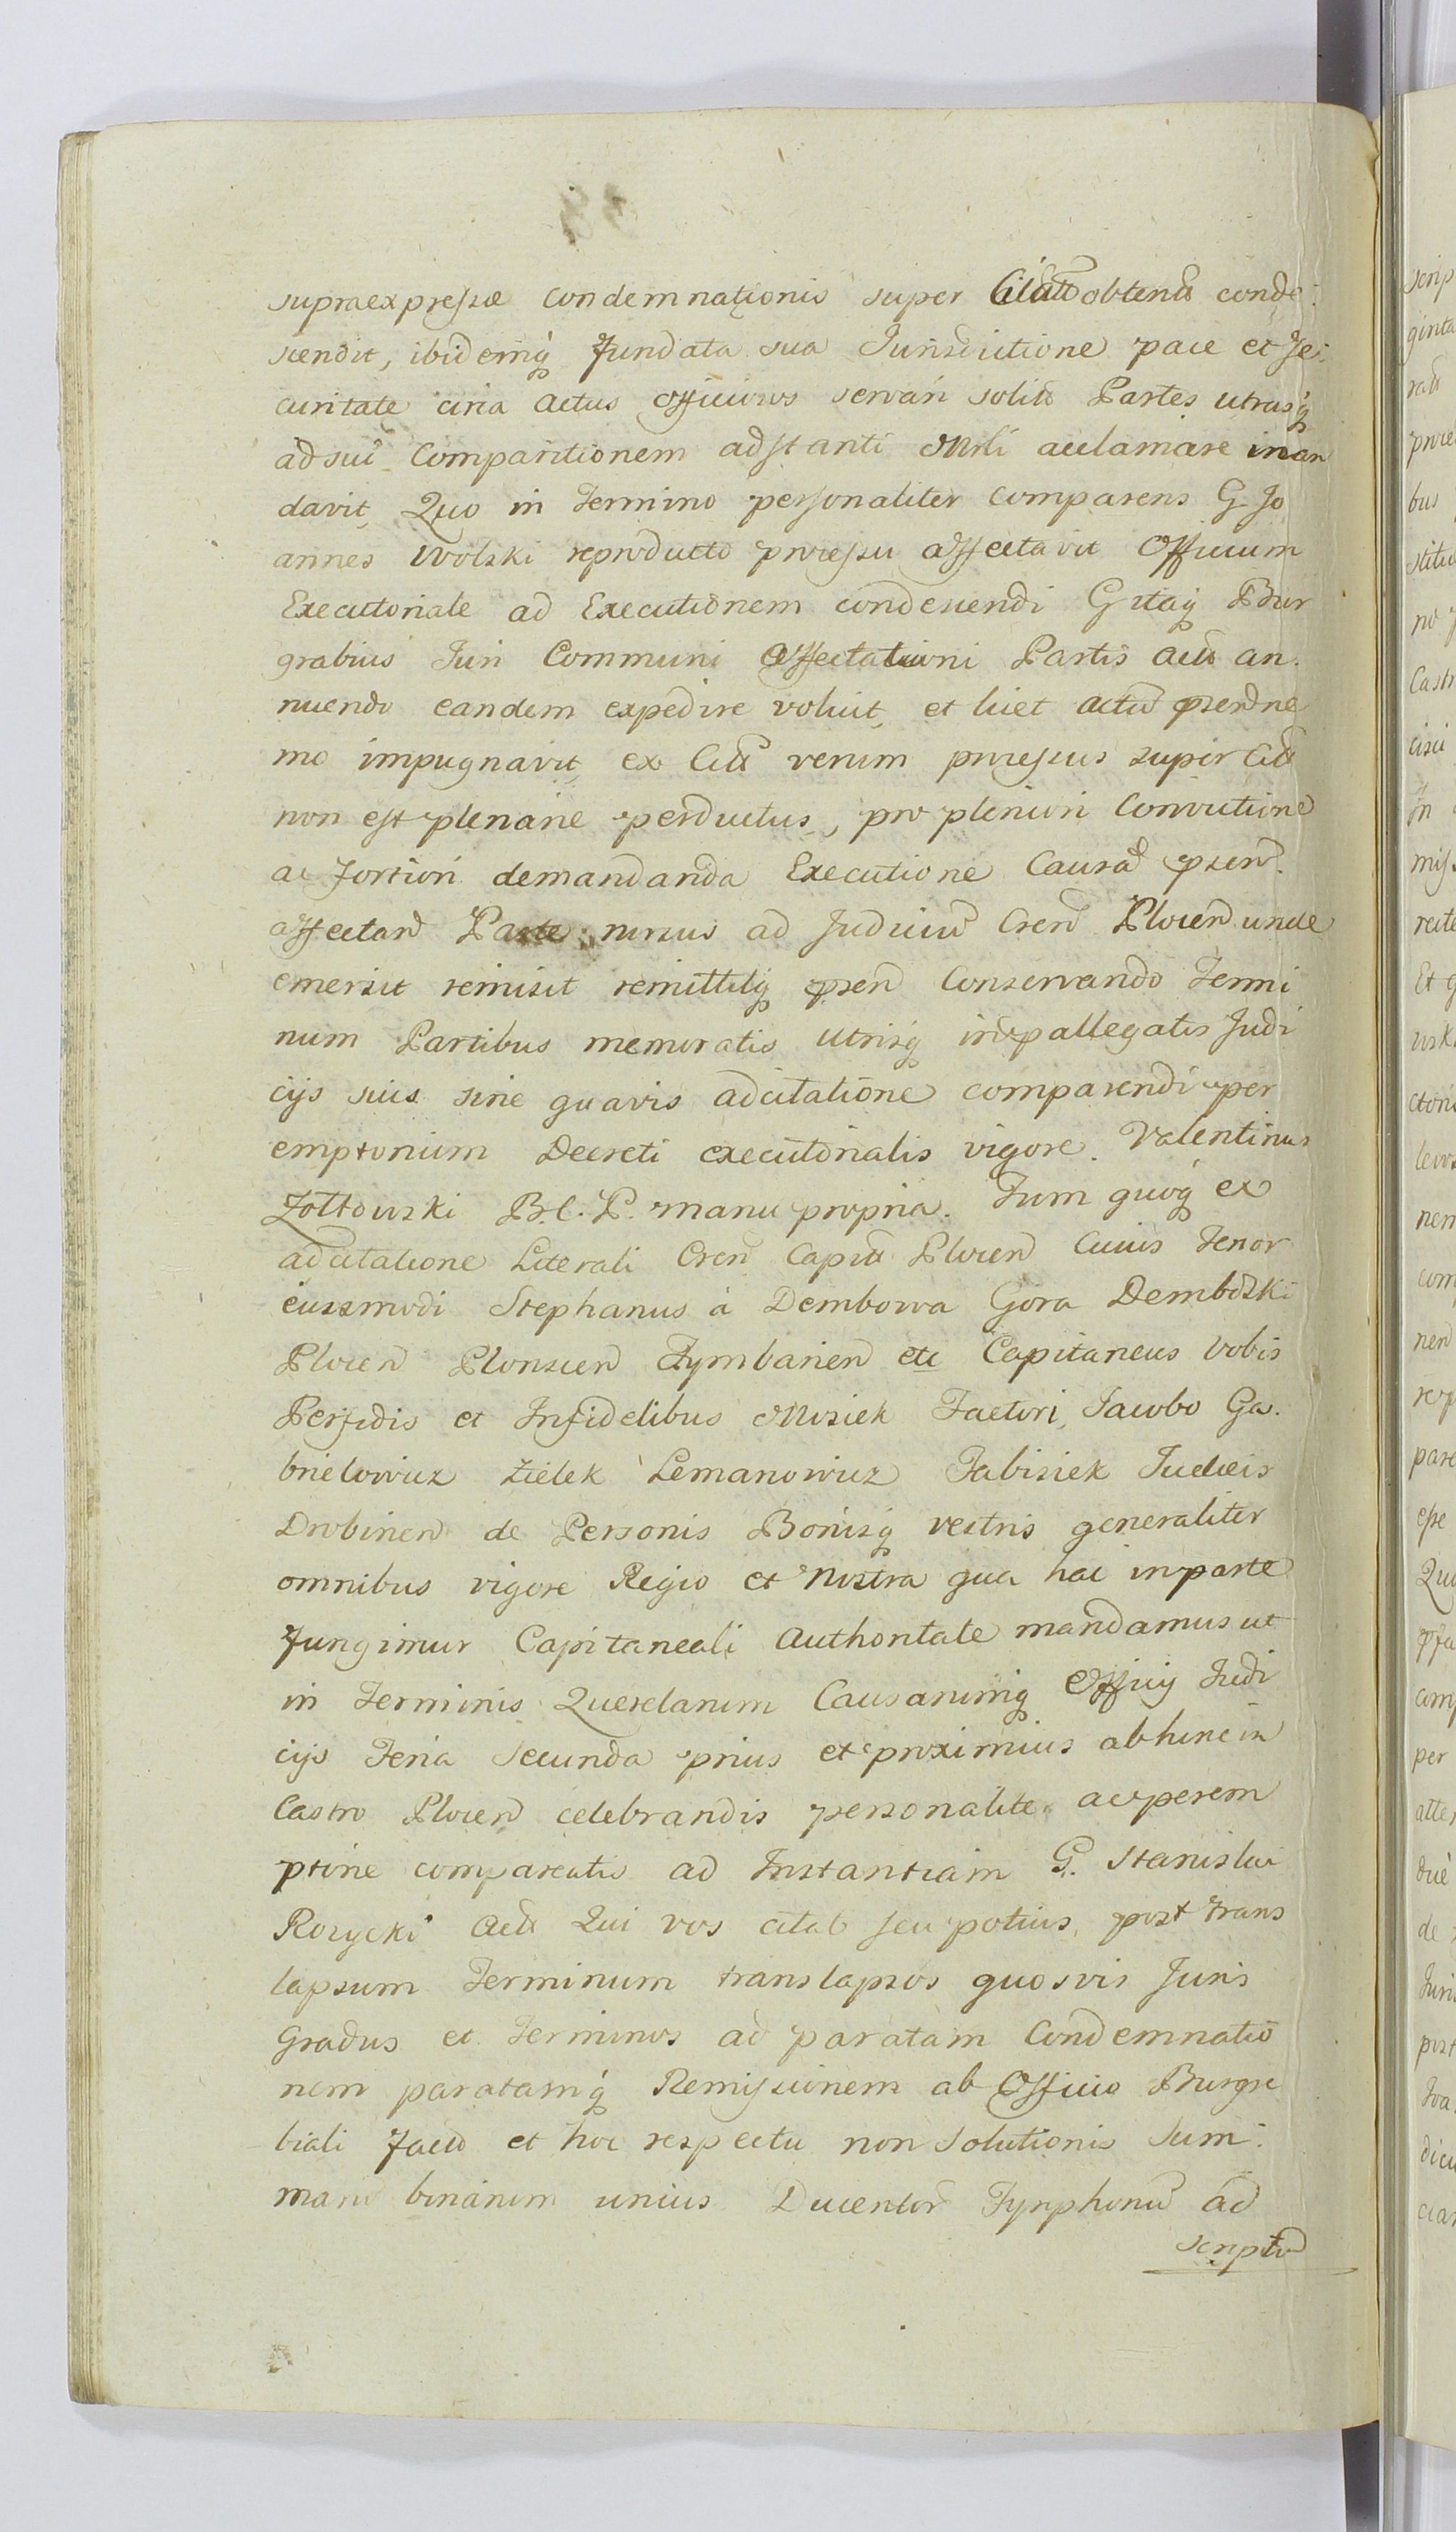 supraexpressæ Condemnationis super obtentâ conde:
scendit, ibidemq̃ Fundata sua Jurisdictione pace et Se:
curitate circa Actus Officiosos servari solitâ Partes utrasq̃
ad sui Comparitionem adstanti Mrlî acclamare man
davit, Quo in Termino personaliter comparens G. Jo
annes Wolski reproducto processu affectavit Officium
Executoriale ad Executionem condescendi Gttaq̃ Bur
grabius Juri Communi Affectationi Partis Actæ an:
nuendo eandem expedire voluit, et licet actũ præn̄ ne
mo impugnavit ex Cittâ verum processus super Cittâ
non est plenarie perductus, pro pleniori Convictione
ac fortiori demandanda Executione Causã præn̄.
affectan̄ Parte rursus ad Judiciũ Cren̄ Plocen̄ unde
emersit remisit remittitq̃ præn̄ Conservando Termi
num Partibus memoratis utrisq̃ in præallegatis Judi
cijs suis sine quavis adcitatione comparendi per
emptorium Decreti executorialis vigore. Valentinus
Zołtowski B. C. P. manu propria. Tum quoq̃ ex
adcitatione Literali Cren̄ Capit̃ Plocen̄ Cuius Tenor
eiusmodi Stephanus à Dembowa Gora Dembowski
Plocen̄ Plonscen̄ Tymbarien̄ etc Capitaneus Vobis
Perfidis et Infidelibus Mosiek Factori, Jacobo Ga:
brielowicz Zielek Lemanowicz Fabisiek Judæis
Drobinen̄ de Personis Bonisq̃ vestris generaliter
omnibus vigore Regio et Nostra qua hac in parte
Fungimur Capitaneali Authoritate mandamus ut
in Terminis Querelarum Causarumq̃ Officij Judi
cijs Feria Secunda prius et proximius abhinc in
Castro Plocen̄ celebrandis personaliter ac perem
ptorie compareatis ad Instantiam G. Stanislai
Rozycki Act̃ Qui vos citat seu potius, post trans
lapsum Terminum translapsos quosvis Juris
Gradus et Terminos ad paratam Condemnatio
nem paratamq̃ Remissionem ab Officio Burgra
biali Facto et hoc respectu non Solutionis Sum:
marũ binarum unius Ducentor̃ Tynphonũ ad
scriptũ